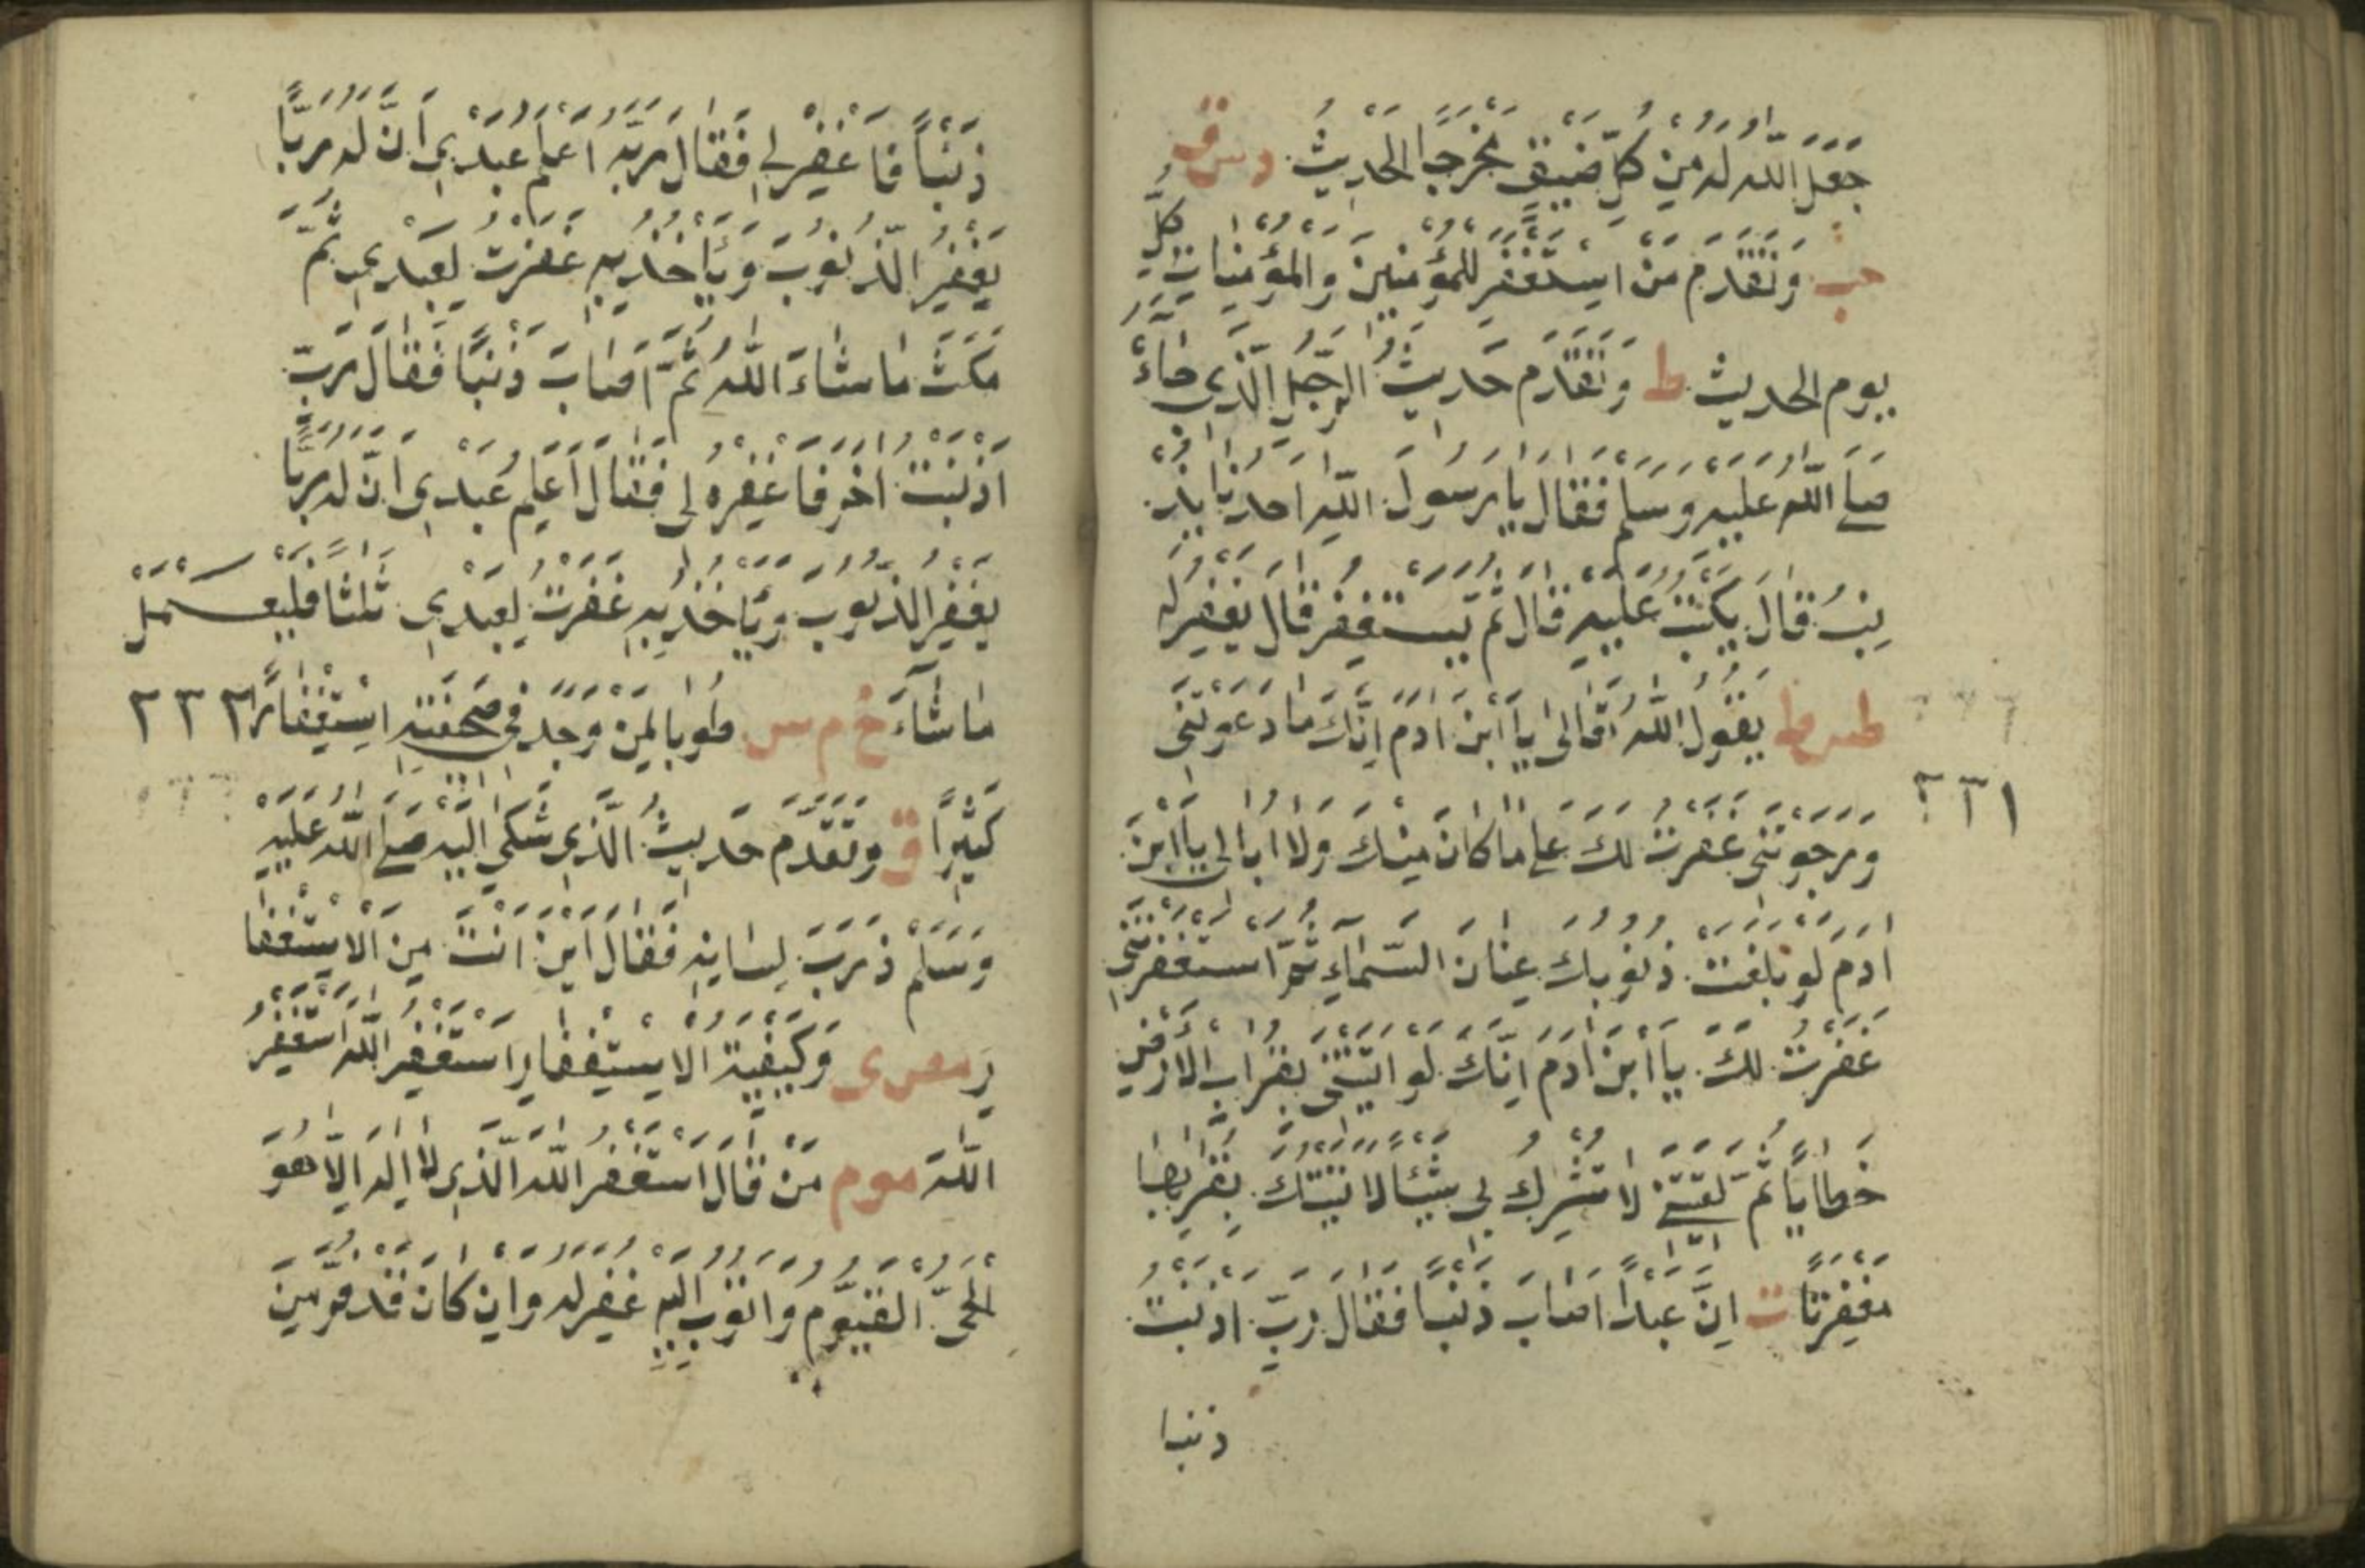 جَعَلَ اللّٰهُ لَهُ مِنْ كُلِّ ضَيِّقٍ مَخْرَجًا الْحَدِيثُ د س ق
حب وَتَقَدَّمَ مَنْ اسْتَغْفَرَ لِلْمُؤْمِنِينَ وَالْمُؤْمِنَاتِ كُلَّ
يوم الحديث ط وَتَقَدَّمَ حَدِيثُ الرَّجُلِ الَّذِي جَاءَهُ
صَلَّى اللّٰهُ عَلَيْهِ وَسَلَّمَ فَقَالَ يَا رَسُولَ اللّٰهِ اَحَدُنَا يُذْ
نِبُ قَالَ يُكْتَبُ عَلَيْهِ قَالَ ثُمَّ يَسْتَغْفِرُ قَالَ يُغْفَرُ لَهُ
طس ط يَقُولُ اللّٰهُ تَعَالَى يَا ابْنَ اٰدَمَ اِنَّكَ مَا دَعَوْتَنِي
٢٣١
وَرَجَوْتَنِي غَفَرْتُ لَكَ عَلَى مَا كَانَ مِنْكَ وَلَا اُبَالِي يَا ابْنَ
اٰدَمَ لَوْ بَلَغَتْ ذُنُوبُكَ عَنَانَ السَّمَاءِ ثُمَّ اسْتَغْفَرْتَنِي
غَفَرْتُ لَكَ يَا ابْنَ اٰدَمَ اِنَّكَ لَوْ اَتَيْتَنِي بِقُرَابِ الْاَرْضِ
خَطَايَا ثُمَّ لَقِيتَنِي لَا تُشْرِكُ بِي شَيْئًا لَاَتَيْتُكَ بِقُرَابِهَا
مَغْفِرَةً ت اِنَّ عَبْدًا اَصَابَ ذَنْبًا فَقَالَ رَبِّ اَذْنَبْتُ
ذنبا
ذَنْبًا فَاغْفِرْ لِي فَقَالَ رَبُّهُ اَعَلِمَ عَبْدِي اَنَّ لَهُ رَبًّا
يَغْفِرُ الذُّنُوبَ وَيَأْخُذُ بِهِ غَفَرْتُ لِعَبْدِي ثُمَّ
مَكَثَ مَا شَاءَ اللّٰهُ ثُمَّ اَصَابَ ذَنْبًا فَقَالَ رَبِّ
اَذْنَبْتُ اٰخَرَ فَاغْفِرْهُ لِي فَقَالَ اَعَلِمَ عَبْدِي اَنَّ لَهُ رَبًّا
يَغْفِرُ الذُّنُوبَ وَيَأْخُذُ بِهِ غَفَرْتُ لِعَبْدِي ثَلٰثًا فَلْيَعْمَلْ
مَا شَاءَ خ م س طُوبَا لِمَنْ وَجَدَ فِي صَحِفَتِهِ اسْتِغْفَارًا ٢٣٢
كَثِيرًا ق وَتَقَدَّمَ حَدِيثُ الَّذِي شَكَى اِلَيْهِ صَلَّى اللّٰهُ عَلَيْهِ
وَسَلَّمَ ذَرَبَ لِسَانِهِ فَقَالَ اَيْنَ اَنْتَ مِنَ الْاِسْتِغْفَا
رِ مص ى وَكَيْفِيَّةُ الْاِسْتِغْفَارِ اَسْتَغْفِرُ اللّٰهَ اَسْتَغْفِرُ
اللّٰهَ مو م مَنْ قَالَ اَسْتَغْفِرُ اللّٰهَ الَّذِي لَا اِلٰهَ اِلَّا هُوَ
الْحَيُّ الْقَيُّومُ وَاَتُوبُ اِلَيْهِ غُفِرَ لَهُ وَاِنْ كَانَ قَدْ فَرَّ مِنَ